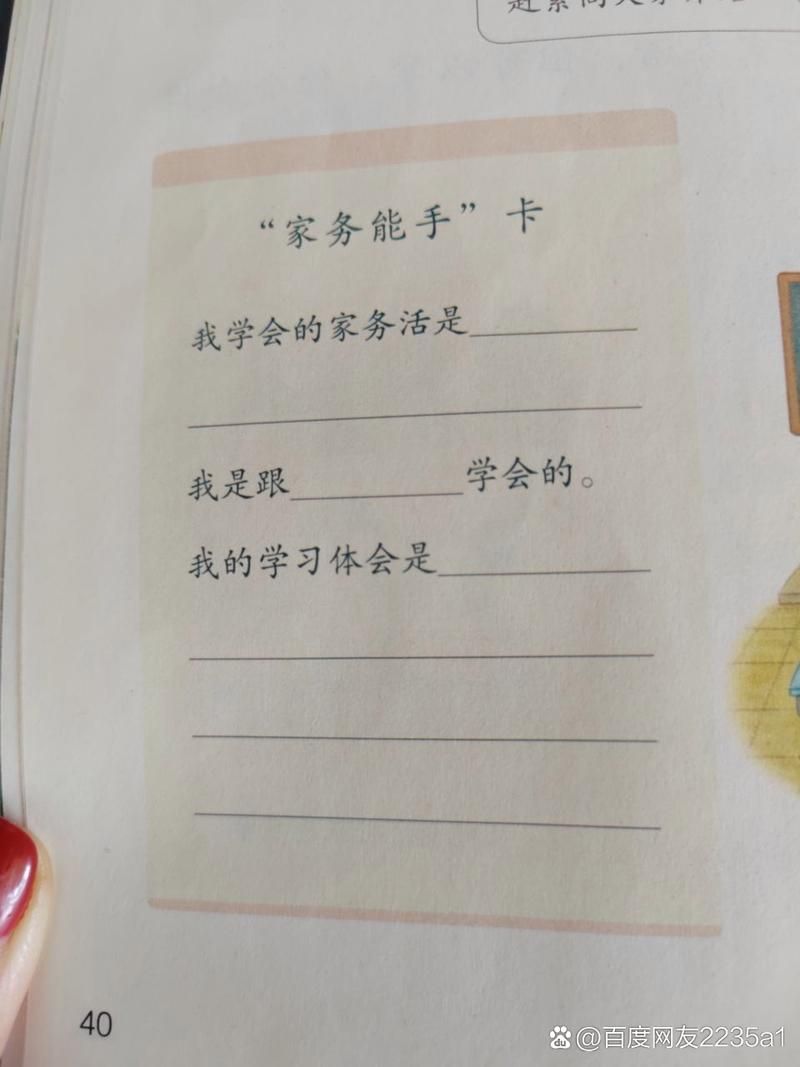 “家务能手”卡
我学会的家务活是
我是跟 学会的。
我的学习体会是
40
@百度网友2235a1